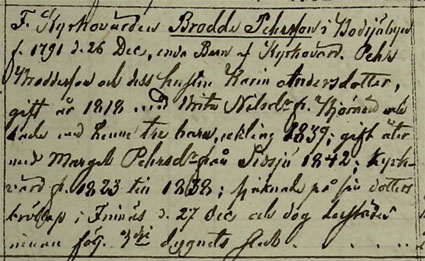 F. Kyrkovärden Brodde Pehrsson i Bodsjöbyn
f. 1791 d. 26 Dec, enda Barn af Kyrkovärd. Pehr
Broddesson och dess hustru Karin Andersdotter,
gift år 1818 med Brita Nilsdr fr. och
hade med henne tre barn, enkling 1839; gift åter
med Marget Pehrsdr från 1842; Kyrk-
värd fr. 1823 till 1838; sjuknade på sin dotters
bröllop i d. 27 Dec och dog
innan 3dje dygnets slut.